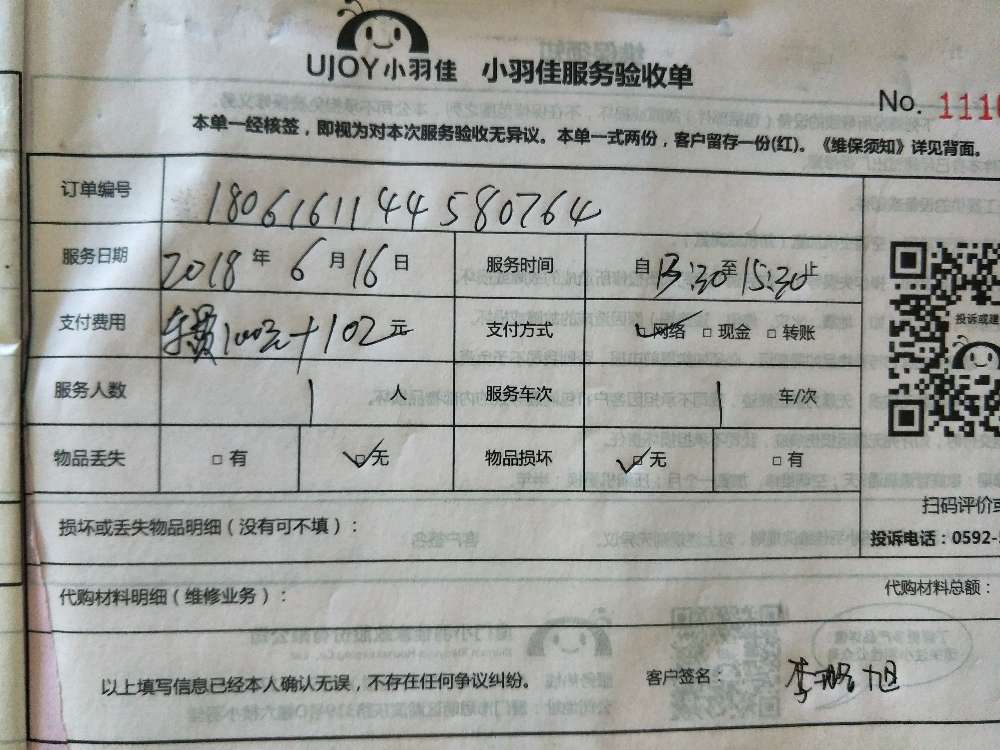 UJOY小羽佳 小羽佳服务验收单
No. 1110
本单一经核签，即视为对本次服务验收无异议。本单一式两份，客户留存一份(红)。《维保须知》详见背面。
订单编号 1806161144580764
服务日期 2018年6月16日 服务时间 自13:30至15:30止
支付费用 车费100元+102元 支付方式 □网络 □现金 □转账
服务人数 1人 服务车次 1车/次
物品丢失 □有 □无 物品损坏 □无 □有
投诉或建
扫码评价或
损坏或丢失物品明细（没有可不填）：
投诉电话：0592-5
代购材料明细（维修业务）： 代购材料总额：
以上填写信息已经本人确认无误，不存在任何争议纠纷。 客户签名：李 旭